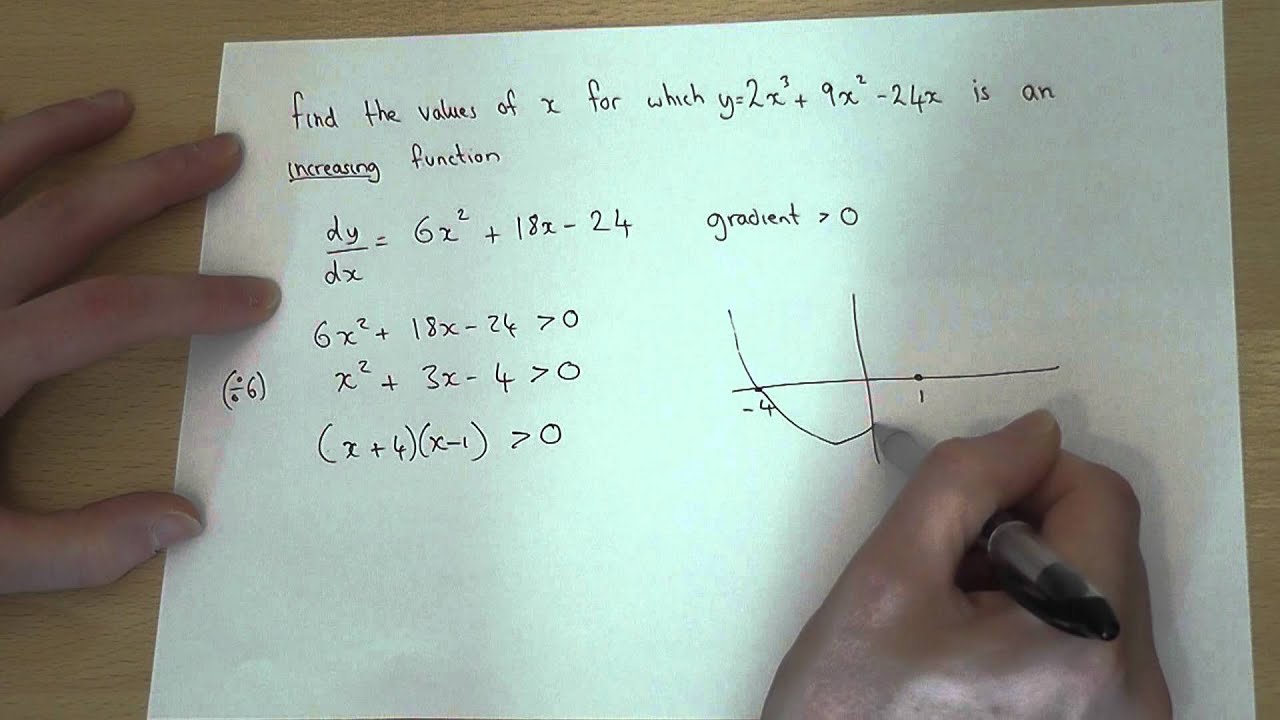 find the values of x for which y=2x³+ 9x²-24x is an
increasing function
dy/dx = 6x² + 18x - 24
gradient > 0
6x² + 18x - 24 > 0
(÷6) x² + 3x - 4 > 0
(x+4)(x-1) > 0
-4
1